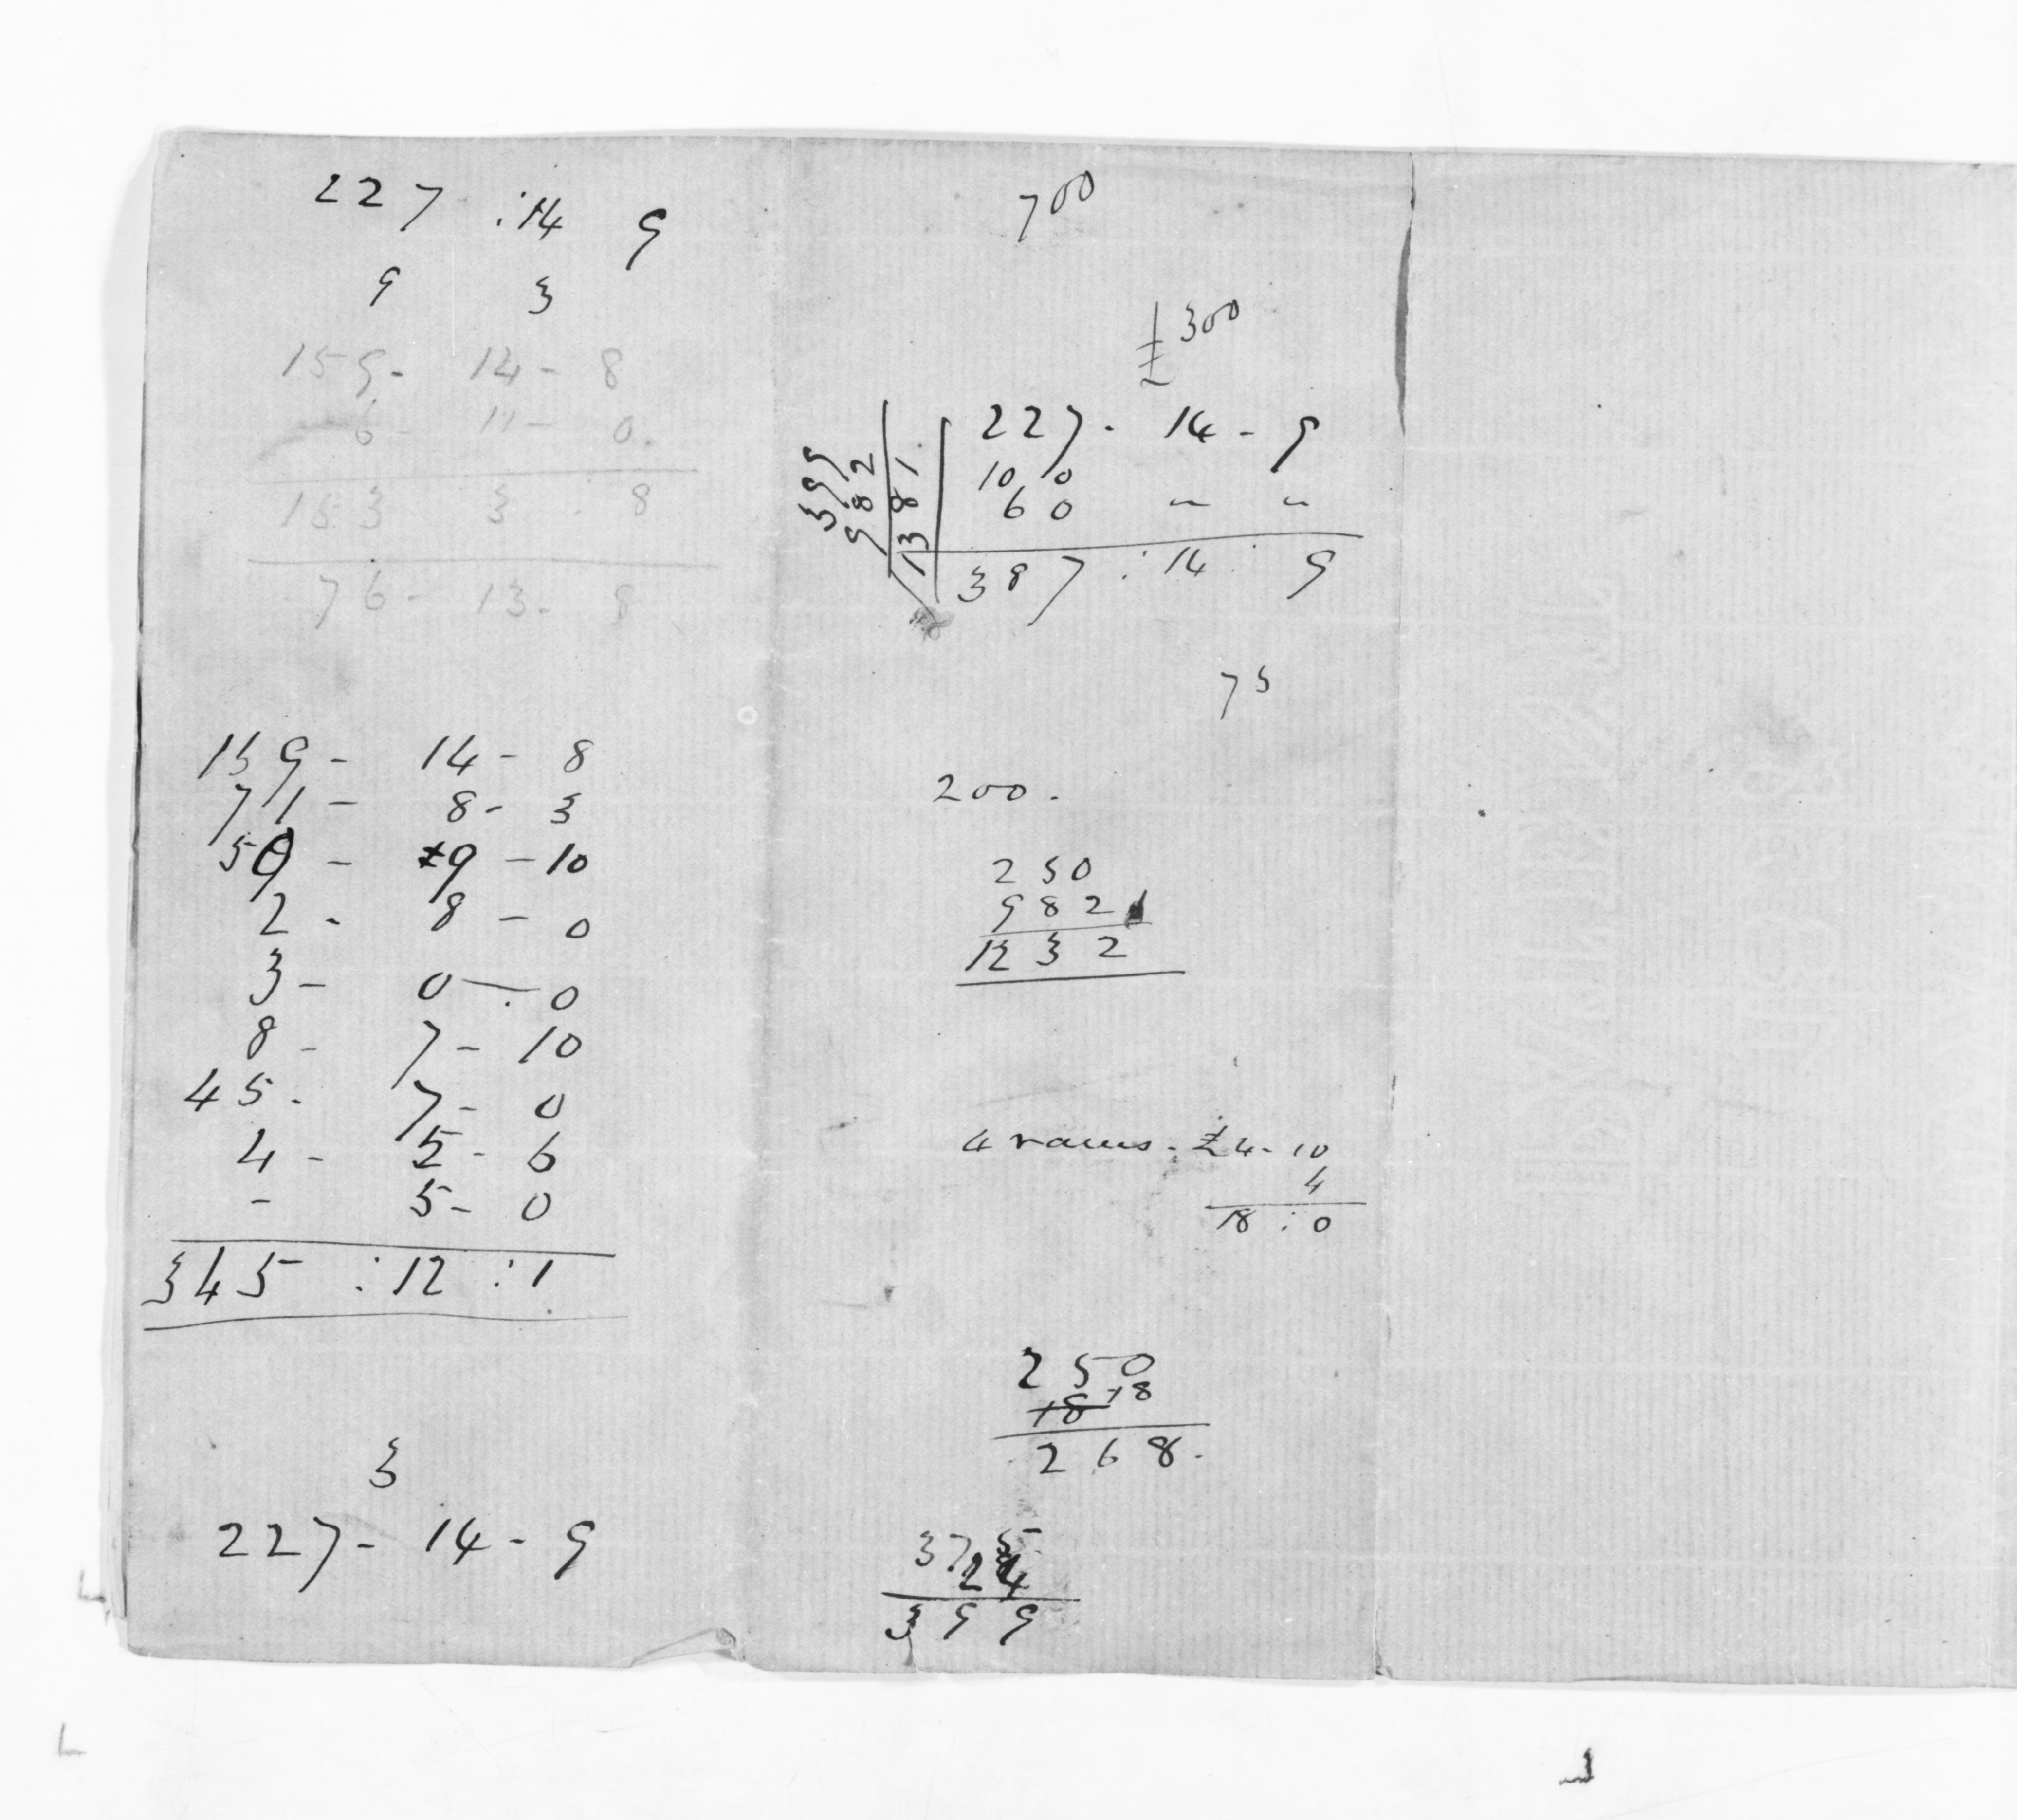 227 : 14 9
9 3
159 - 14 - 8
6 - 11 - 0.
153 3 : 8
76 - 13 - 8
159 - 14 - 8
71 - 8 - 3
50 - 9 - 10
2 - 8 - 0
3 - 0 - 0
8 - 7 - 10
45 - 7 - 0
4 - 5 - 6
- 5 - 0
345 : 12 : 1
3
227 - 14 - 9
700
£300
399
982
1381
227 - 14 - 9
100
60 - -
387 : 14 : 9
75
200.
250
982
1232
4 rams. £4 - 10
4
18 : 0
250
18 18
268.
375
24
399